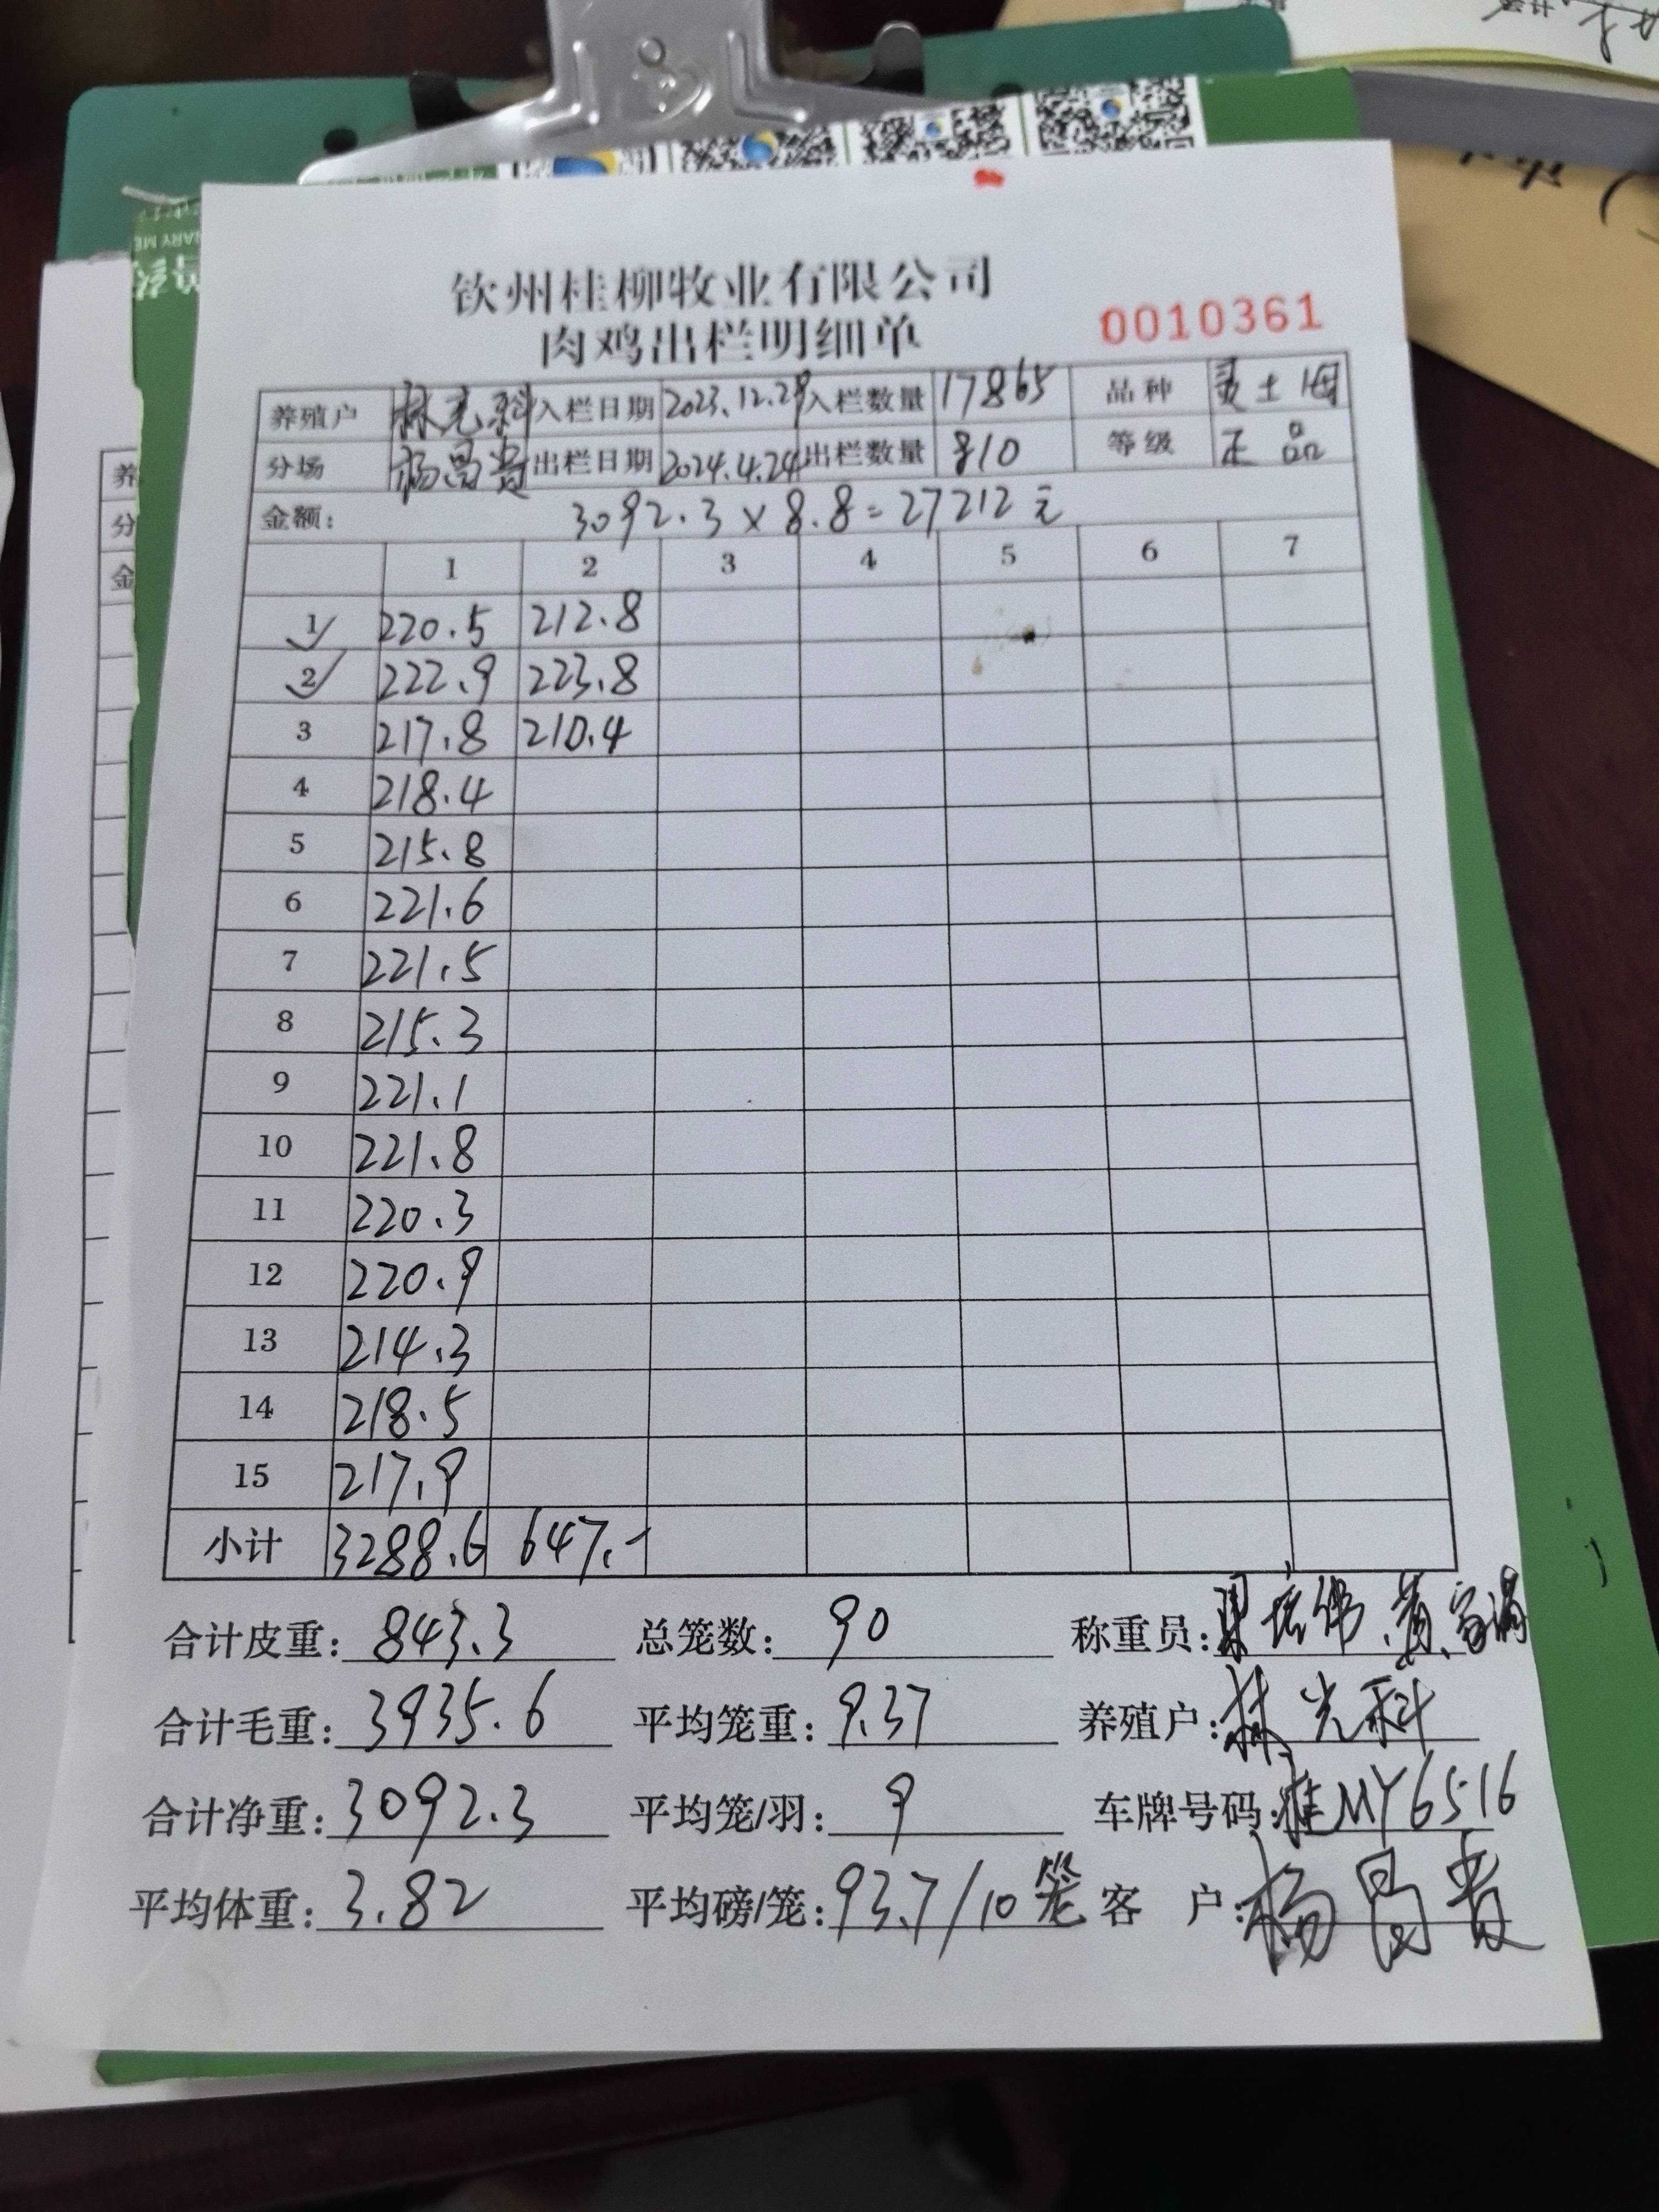 钦州桂柳牧业有限公司
肉鸡出栏明细单
0010361
养殖户 林光科 入栏日期 2023.12.29 入栏数量 17865 品种 灵土
分场 杨昌贵 出栏日期 2024.4.24 出栏数量 810 等级 正品
金额: 3092.3×8.8=27212元
1 2 3 4 5 6 7
1 220.5 212.8
2 222.9 223.8
3 217.8 210.4
4 218.4
5 215.8
6 221.6
7 221.5
8 215.3
9 221.1
10 221.8
11 220.3
12 220.9
13 214.3
14 218.5
15 217.9
小计 3288.6 647.-
合计皮重: 843.3 总笼数: 90 称重员:
合计毛重: 3935.6 平均笼重: 9.37 养殖户: 林光科
合计净重: 3092.3 平均笼/羽: 9 车牌号码: 桂MY6516
平均体重: 3.82 平均磅/笼: 93.7/10笼 客 户: 杨昌贵
养
分
金